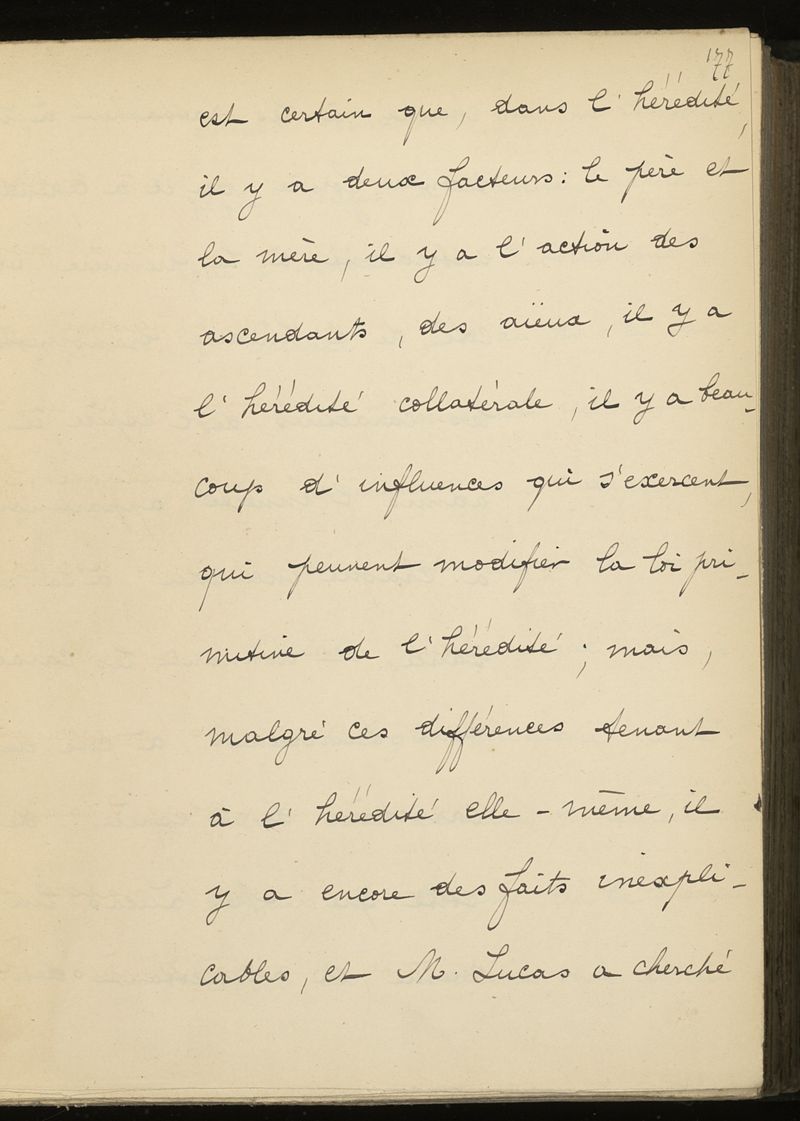 177
est certain que, dans l'hérédité,
il y a deux facteurs : le père et
la mère, il y a l'action des
ascendants, des aïeux, il y a
l'hérédité collatérale, il y a beau-
coup d'influences qui s'exercent,
qui peuvent modifier la loi pri-
mitive de l'hérédité ; mais,
malgré ces différences tenant
à l'hérédité elle-même, il
y a encore des faits inexpli-
cables, et M. Lucas a cherché